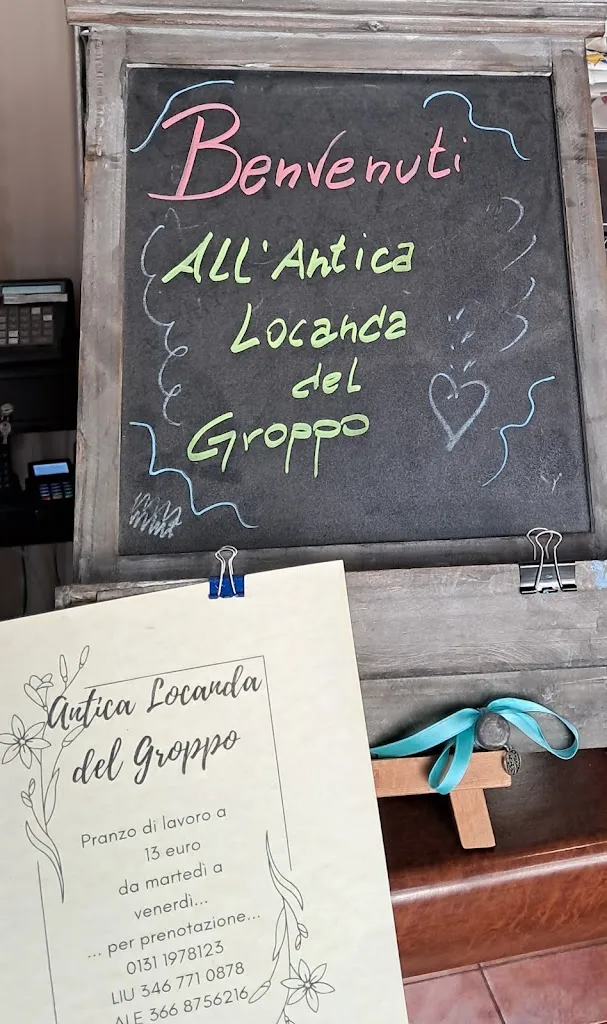 Benvenuti
All'Antica
Locanda
del
Groppo
Antica Locanda
del Groppo
Pranzo di lavoro a
13 euro
da martedì a
venerdì...
... per prenotazione...
0131 1978123
LIU 346 771 0878
ALE 366 8756216